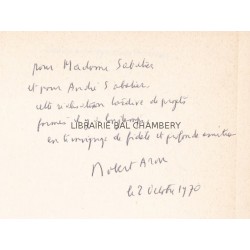 pour Madame Sabatier
et pour André Sabatier
cette réalisation tardive de projets
formés il y a longtemps
LIBRAIRIE BAL CHAMBERY
en témoignage de fidèle et profonde amitié
Robert Aron
le 2 Octobre 1970